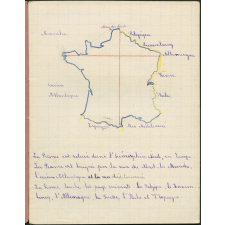 Mer du Nord
Belgique
Manche
Luxembourg
Allemagne
Suisse
Océan
Atlantique
Italie
Espagne
Mer Méditerranée
La France est située dans l'hémisphère Nord, en Europe
La France est baignée par la mer du Nord, la Manche,
l'océan Atlantique et la mer Méditerranée
La France touche les pays suivants: la Belgique, le Luxem-
bourg, l'Allemagne, la Suisse, l'Italie et l'Espagne